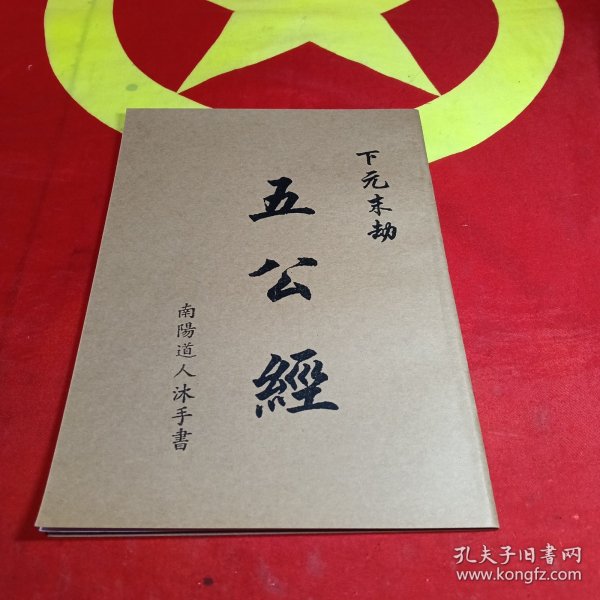 下元末劫
五公經
南陽道人沐手書
孔夫子旧书网
www.kongfz.com